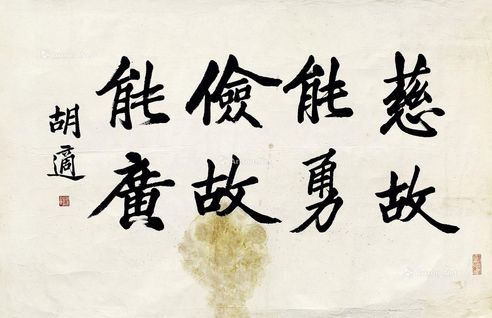 慈故
能勇
儉故
能廣
胡適